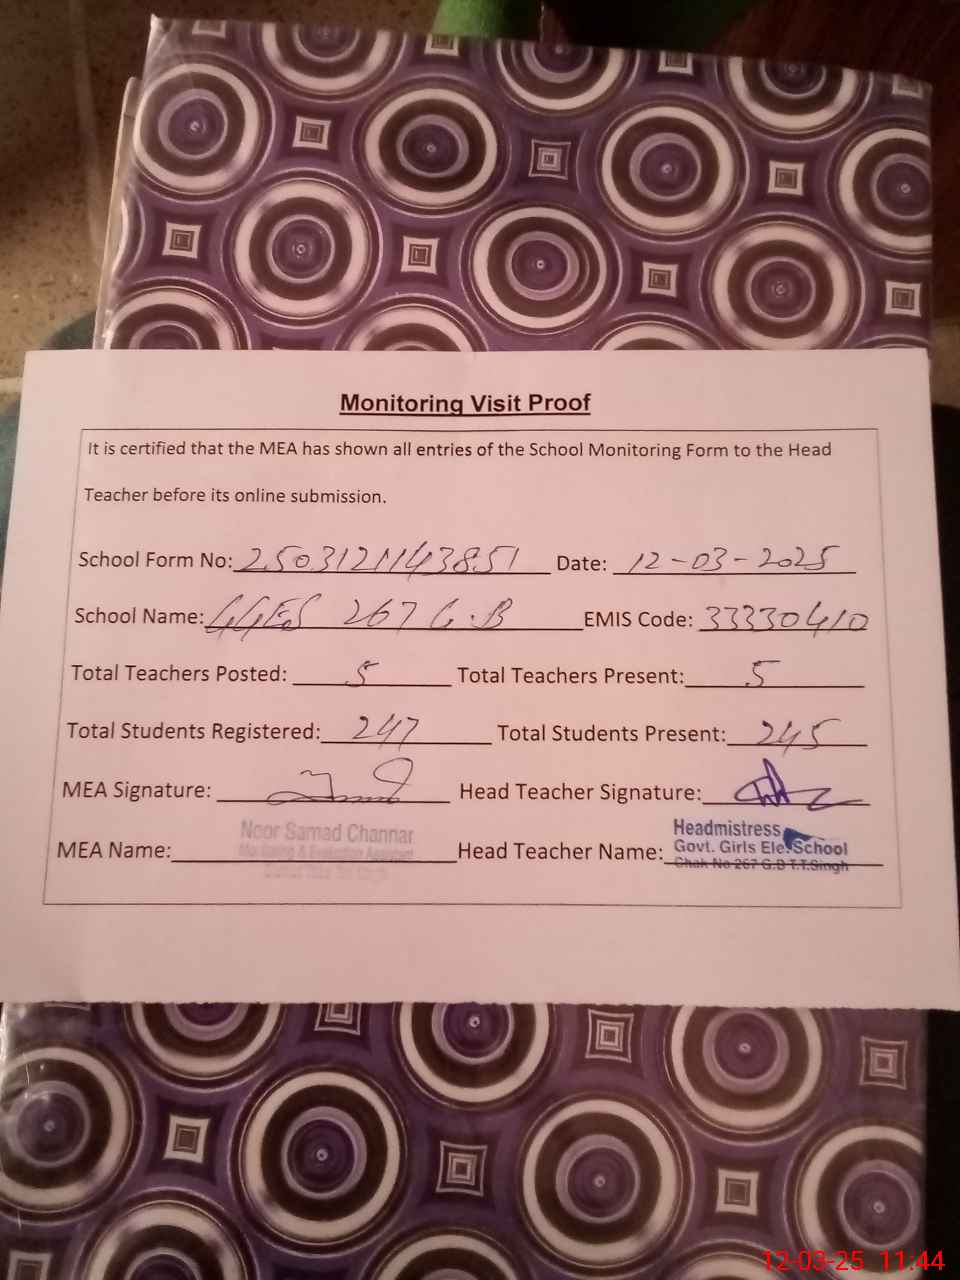 Monitoring Visit Proof
It is certified that the MEA has shown all entries of the School Monitoring Form to the Head
Teacher before its online submission.
School Form No: 2503121143851 Date: 12-03-2025
School Name: GGES 267 G.B EMIS Code: 33330410
Total Teachers Posted: 5 Total Teachers Present: 5
Total Students Registered: 247 Total Students Present: 245
MEA Signature: Head Teacher Signature:
MEA Name: Noor Samad Channar
Monitoring & Evaluation Assistant
Head Teacher Name: Headmistress
Govt. Girls Ele. School
Chak No 267 G.B T.T.Singh
12-03-25 11:44